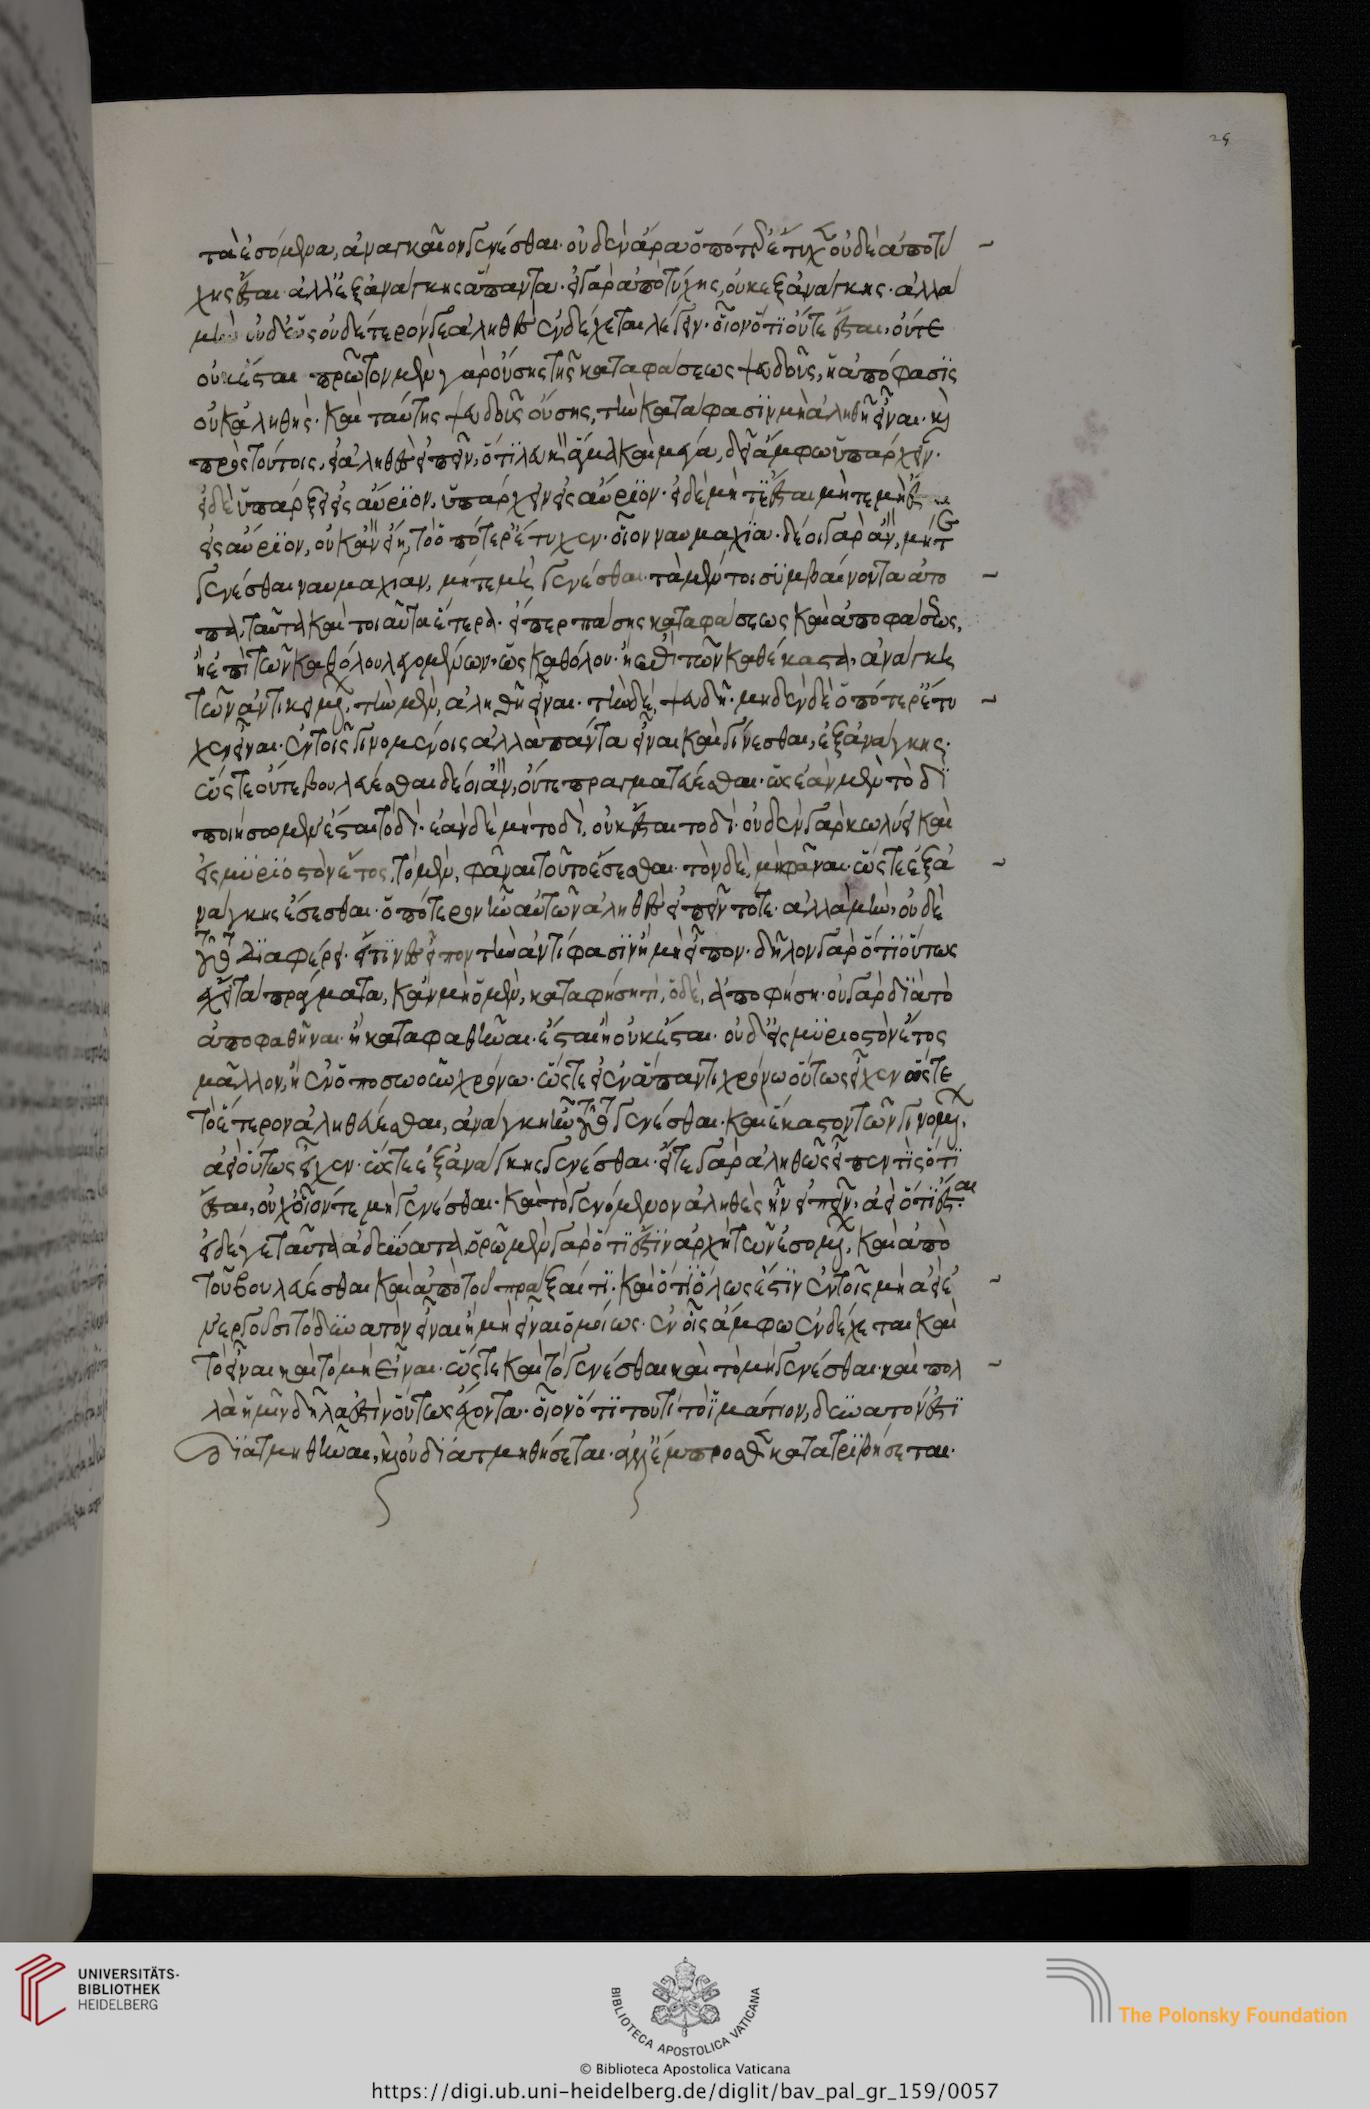 25
τὰ ἐσόμενα, ἀναγκαῖον γενέσθαι· οὐδὲν ἄρα ὁπότερ' ἔτυχεν οὐδὲ ἀπὸ τύ
χης ἔσται· ἀλλ' ἐξ ἀνάγκης ἅπαντα· εἰ γὰρ ἀπὸ τύχης, οὐκ ἐξ ἀνάγκης· ἀλλὰ
μὴν οὐδ' ὡς οὐδέτερόν γε ἀληθὲς ἐνδέχεται λέγειν· οἷον ὅτι οὔτε ἔσται, οὔτε
οὐκ ἔσται πρῶτον μὲν γὰρ οὔσης τῆς καταφάσεως ψευδοῦς, ἡ ἀπόφασις
οὐκ ἀληθής· καὶ ταύτης ψευδοῦς οὔσης, τὴν κατάφασιν μὴ ἀληθῆ εἶναι· καὶ
πρὸς τούτοις, εἰ ἀληθὲς εἰπεῖν, ὅτι λευκὸν ἅμα καὶ μέγα, δεῖ ἄμφω ὑπάρχειν·
εἰ δὲ ὑπάρξει εἰς αὔριον, ὑπάρχειν εἰς αὔριον· εἰ δὲ μήτε ἔσται μήτε μὴ ἔσται
εἰς αὔριον, οὐκ ἂν εἴη, τὸ ὁπότερ' ἔτυχεν· οἷον ναυμαχία· δέοι γὰρ ἂν, μήτε
γενέσθαι ναυμαχίαν, μήτε μὴ γενέσθαι· τὰ μὲν τοι συμβαίνοντα ἄτο
πα, ταῦτα καὶ τοιαῦτα ἕτερα· εἴπερ πάσης καταφάσεως καὶ ἀποφάσεως,
ἢ ἐπὶ τῶν καθόλου λεγομένων, ὡς καθόλου· ἢ ἐπὶ τῶν καθέκαστα, ἀνάγκη
τῶν ἀντικειμένων, τὴν μὲν, ἀληθῆ εἶναι· τὴν δὲ, ψευδῆ· μηδὲν δὲ ὁπότερ' ἔτυ
χεν εἶναι· ἐν τοῖς γινομένοις ἀλλὰ πάντα εἶναι καὶ γίνεσθαι, ἐξ ἀνάγκης·
ὥστε οὔτε βουλεύεσθαι δέοι ἂν, οὔτε πραγματεύεσθαι· ὡς ἐὰν μὲν τὸ δὶ
ποιήσωμεν ἔσται τὸ δὶ· ἐὰν δὲ μὴ τοδὶ, οὐκ ἔσται τοδὶ· οὐδὲν γὰρ κωλύει καὶ
εἰς μυριοστὸν ἔτος, τὸ μὲν, φάναι τοῦτο ἔσεσθαι· τὸν δὲ, μὴ φάναι· ὥστε ἐξ ἀ
νάγκης ἔσεσθαι· ὁπότερον ἦν αὐτῶν ἀληθὲς εἰπεῖν τότε· ἀλλὰ μὴν, οὐδὲ
τοῦτο διαφέρει· εἴ τινες εἶπον τὴν ἀντίφασιν ἢ μὴ εἶπον· δῆλον γὰρ ὅτι οὕτως
ἔχει τὰ πράγματα, κἂν μὴ ὁ μὲν, καταφήσῃ τι, ὁ δὲ, ἀποφήσῃ· οὐ γὰρ διὰ τὸ
ἀποφαθῆναι· ἢ καταφαθῆναι· ἔσται ἢ οὐκ ἔσται· οὐδ' εἰς μυριοστὸν ἔτος
μᾶλλον, ἢ ἐν ὁποσωοῦν χρόνω· ὥστε εἰ ἐν ἅπαντι χρόνω οὕτως εἶχεν ὥστε
τὸ ἕτερον ἀληθεύεσθαι, ἀνάγκη ἦν τοῦτο γενέσθαι· καὶ ἕκαστον τῶν γινομένων,
ἀεὶ οὕτως εἶχεν· ὥστε ἐξ ἀνάγκης γενέσθαι· ὅτε γὰρ ἀληθῶς εἶπεν τὶς ὅτι
ἔσται, οὐχ οἷόν τε μὴ γενέσθαι· καὶ τὸ γενόμενον ἀληθὲς ἦν εἰπεῖν, ἀεὶ ὅτι ἔσται·
εἰ δέ γε ταῦτα ἀδύνατα, ὁρῶμεν γὰρ ὅτι ἔστιν ἀρχὴ τῶν ἐσομένων, καὶ ἀπὸ
τοῦ βουλεύεσθαι καὶ ἀπὸ τοῦ πρᾶξαί τι· καὶ ὅτι ὅλως ἐστὶν ἐν τοῖς μὴ ἀεὶ ἐ
νεργοῦσι τὸ δυνατὸν εἶναι ἢ μὴ εἶναι ὁμοίως· ἐν οἷς ἄμφω ἐνδέχεται καὶ
τὸ εἶναι καὶ τὸ μὴ εἶναι· ὥστε καὶ τὸ γενέσθαι καὶ τὸ μὴ γενέσθαι· καὶ πολ
λὰ ἡμῖν δῆλα ἐστὶν οὕτως ἔχοντα· οἷον ὅτι τουτὶ τὸ ἱμάτιον, δυνατόν ἐστι
διατμηθῆναι, καὶ οὐ διατμηθήσεται· ἀλλ' ἔμπροσθεν κατατριβήσεται·
UNIVERSITÄTS-
BIBLIOTHEK
HEIDELBERG
BIBLIOTECA APOSTOLICA VATICANA
© Biblioteca Apostolica Vaticana
The Polonsky Foundation
https://digi.ub.uni-heidelberg.de/diglit/bav_pal_gr_159/0057